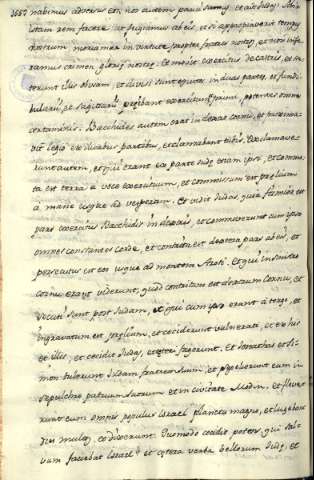 nabimus adversus eos, nos autem pauci sumus et ait Judas. Absit
istam rem facere ut fugiamus ab eis, et si appropinquavit tempus
nostrum moriamur in virtute propter fratres nostros, et non infe
ramus crimen gloriæ nostræ. et movit exercitus de castris, et ste
terunt illis obviam, et divisi sunt equites in duas partes, et fundi
bularii, et sagittarii præibant exercitum, primi potentes omnes
certaminis. Bacchides autem erat in dextro cornu, et proxima
vit legio ex duabus partibus, et clamabant tubis. Exclamave
runt autem, et qui erant ex parte Judæ etiam ipsi, et commo
ta est terra a voce exercituum, et commissum est prælium
a mane usque ad vesperam. et vidit Judas, quia firmior est
pars exercitus Bacchidis in dextris, et convenerunt cum ipso
omnes constantes corde, et contrita est dextera pars ab eis, et
persecutus est eos usque ad montem Azoti. et qui in sinistro
cornu erant viderunt, quod contritum est dextrum cornu, et
secuti sunt post Judam, et qui cum ipso erant a tergo, et
ingravatum est prælium, et ceciderunt vulnerati, ex his
et illis, et cecidit Judas, et fugerunt. et Jonathas et Si
mon tulerunt Judam fratrem suum, et sepelierunt eum in
sepulchro patrum suorum in civitate Modin, et fleve
runt eum omnis populus Israel planctu magno, et lugebant
dies multos, et dixerunt. Quomodo cecidit potens, qui sal
vum faciebat Israel? et cætera verba bellorum Judæ, et